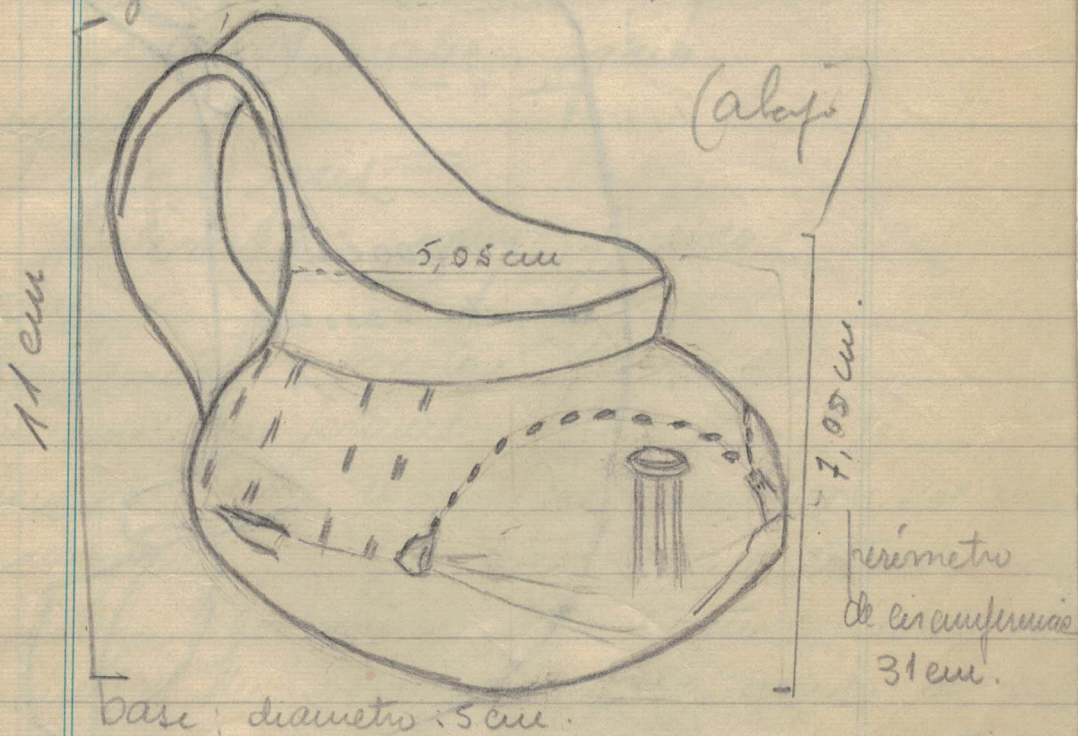 (abajo)
5,05 cm
11 cm
7,05 cm.
perímetro
de circunferencia
31 cm.
base: diametro: 5 cm.